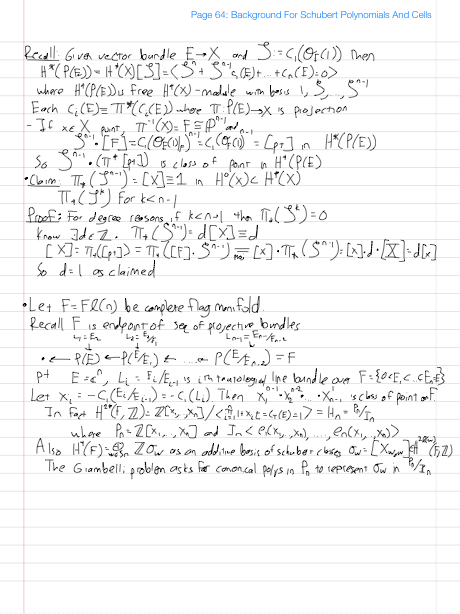 Page 64: Background For Schubert Polynomials And Cells
Recall: Given vector bundle E→X and ζ := C₁(O_E(1)) Then
H*(P(E)) = H*(X)[ζ] = <ζⁿ + ζⁿ⁻¹c₁(E)+...+cₙ(E)=0>
where H*(P(E)) is free H*(X)-module with basis 1, ζ, ..., ζⁿ⁻¹
Each Cᵢ(E) = π*(Cᵢ(E)) where π: P(E)→X is projection
- If x∈X point, π⁻¹(x)=F≅Pⁿ⁻¹ and
ζⁿ⁻¹·[F] = C₁(O_E(1)|_F)ⁿ⁻¹ = C₁(O_F(1))ⁿ⁻¹ = [pt] in H*(P(E))
So ζⁿ⁻¹·(π*[pt]) is class of point in H*(P(E))
• Claim: π_*(ζⁿ⁻¹) = [X] = 1 in H⁰(X) < H*(X)
π_*(ζᵏ) for k<n-1
Proof: For degree reasons, if k<n-1 then π_*(ζᵏ)=0
Know ∃d∈Z. π_*(ζⁿ⁻¹) = d[X] = d
[x] = π_*([pt]) = π_*([F]·ζⁿ⁻¹) = [x]·π_*(ζⁿ⁻¹) = [x]·d·[X] = d[x]
So d=1 as claimed
• Let F = Fl(n) be complete flag manifold.
Recall F is endpoint of seq of projective bundles
L₁=E₁ L₂=E₂/E₁ Lₙ₋₁=Eₙ₋₁/Eₙ₋₂
• ← P(E) ← P(E/E₁) ← ... ← P(E/Eₙ₋₂) = F
pt E=ℂⁿ, Lᵢ = Eᵢ/Eᵢ₋₁ is i th tautological line bundle over F={0<E₁<..<Eₙ=E}
Let xᵢ = -C₁(Eᵢ/Eᵢ₋₁) = -C₁(Lᵢ). Then x₁ⁿ⁻¹·x₂ⁿ⁻²·...·xₙ₋₁ is class of point on F.
In Fact H²*(F, Z) = Z[x₁,..,xₙ]/<∏ᵢ₌₁ⁿ 1+xᵢt = C_t(E)=1> = Hₙ = Pₙ/Iₙ
where Pₙ = Z[x₁,..,xₙ] and Iₙ < e₁(x₁,..,xₙ), ..., eₙ(x₁,..,xₙ)>
Also H*(F) = ⊕ Zσ_w as an additive basis of schubert classes σ_w = [X_w₀w] ∈ H²ˡ⁽ʷ⁾(F,Z)
The Giambelli problem asks for canonical polys in Pₙ to represent σ_w in Pₙ/Iₙ